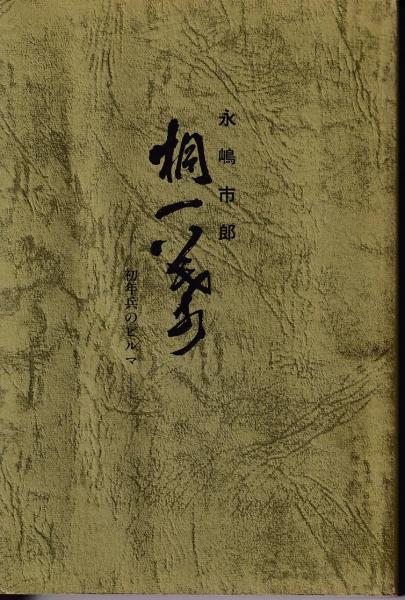 永嶋市郎
桐一葉
―初年兵のビルマ―